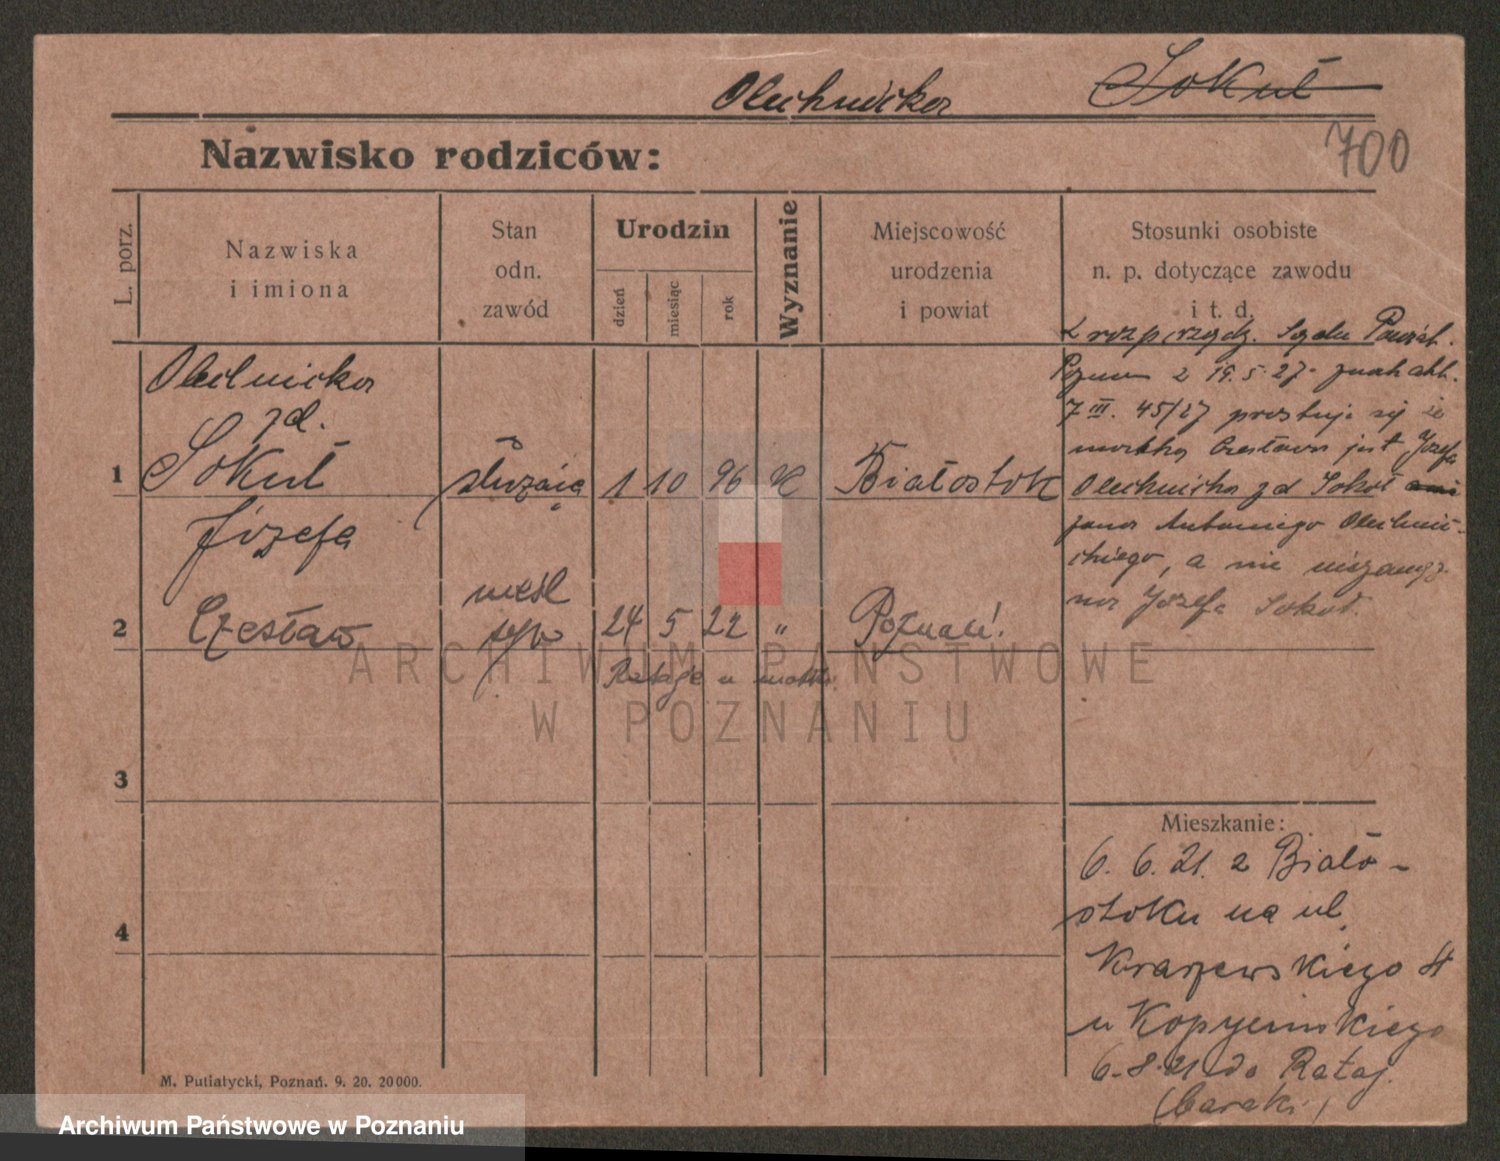 Olechnicka Sokuł
700
Nazwisko rodziców:
L. porz.
Nazwiska
i imiona
Stan
odn.
zawód
Urodzin
dzień
miesiąc
rok
Wyznanie
Miejscowość
urodzenia
i powiat
Stosunki osobiste
n. p. dotyczące zawodu
i t. d.
Olechnicka
zd.
1 Sokuł służąca 1 10 96 K Białostok
Józefa
2 Czesław nieśl syn 24 5 22 " Poznań.
Rataje u matki
3
4
z rozporządz. Sądu Powiat.
Pozn z 19.5.27. znak akt.
7 III. 45/27 prostuje się że
matką Czesława jest Józefa
Olechnicka zd Sokoł
żona Antoniego Olechni-
ckiego, a nie niezamęż
na Józefa Sokoł.
Mieszkanie:
6. 6. 21. z Biało-
stoku na ul.
Kraszewskiego
u
6.8.21 do Rataj.
(baraki)
M. Putiatycki, Poznań. 9. 20. 20000.
ARCHIWUM PAŃSTWOWE
W POZNANIU
Archiwum Państwowe w Poznaniu